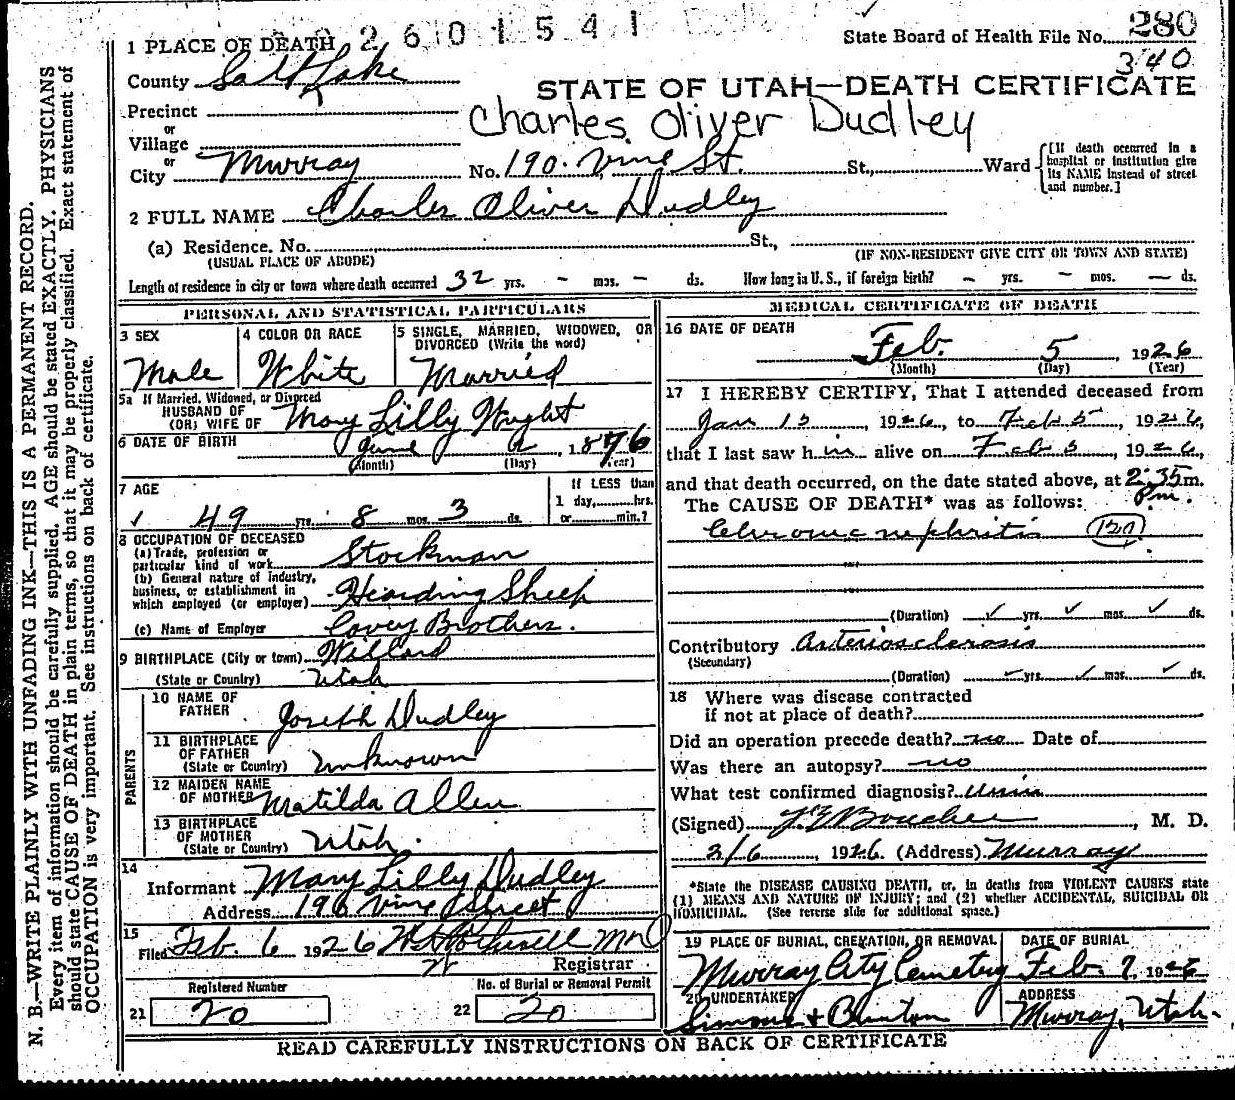 2601541
1 PLACE OF DEATH
State Board of Health File No. 280
340
County Salt Lake
STATE OF UTAH—DEATH CERTIFICATE
Precinct
Charles Oliver Dudley
or
Village
or
City Murray No. 190 Vine St. St., Ward
[If death occurred in a hospital or institution give its NAME instead of street and number.]
2 FULL NAME Charles Oliver Dudley
(a) Residence. No. St.,
(USUAL PLACE OF ABODE) (IF NON-RESIDENT GIVE CITY OR TOWN AND STATE)
Length of residence in city or town where death occurred 32 yrs. – mos. – ds. How long in U. S., if foreign birth? – yrs. – mos. – ds.
PERSONAL AND STATISTICAL PARTICULARS
3 SEX
Male
4 COLOR OR RACE
White
5 SINGLE, MARRIED, WIDOWED, OR
DIVORCED (Write the word)
Married
5a If Married, Widowed, or Divorced
HUSBAND OF
(OR) WIFE OF Mary Lilly Wright
6 DATE OF BIRTH
June 2, 1876
(Month) (Day) (Year)
7 AGE
49 yrs. 8 mos. 3 ds.
If LESS than
1 day, hrs.
or min.?
8 OCCUPATION OF DECEASED
(a) Trade, profession or
particular kind of work Stockman
(b) General nature of Industry,
business, or establishment in
which employed (or employer) Hearding Sheep
(c) Name of Employer Covey Brothers.
9 BIRTHPLACE (City or town) Willard
(State or Country) Utah
PARENTS
10 NAME OF
FATHER Joseph Dudley
11 BIRTHPLACE
OF FATHER
(State or Country) Unknown
12 MAIDEN NAME
OF MOTHER Matilda Allen
13 BIRTHPLACE
OF MOTHER
(State or Country) Utah.
14
Informant Mary Lilly Dudley
Address 190 Vine Street
15
Filed Feb. 6 1926
Registrar
Registered Number
21 20
No. of Burial or Removal Permit
22 20
MEDICAL CERTIFICATE OF DEATH
16 DATE OF DEATH
Feb. 5, 1926
(Month) (Day) (Year)
17 I HEREBY CERTIFY, That I attended deceased from
Jan 13, 1926, to Feb 5, 1926,
that I last saw him alive on Feb 5, 1926,
and that death occurred, on the date stated above, at 2:35 m.
Pm.
The CAUSE OF DEATH* was as follows:
Chronic nephritis
(Duration) yrs. mos. ds.
Contributory Arteriosclerosis
(Secondary)
(Duration) yrs. mos. ds.
18 Where was disease contracted
if not at place of death?
Did an operation precede death? no Date of
Was there an autopsy? no
What test confirmed diagnosis?
(Signed) , M. D.
2/6, 1926 (Address) Murray
*State the DISEASE CAUSING DEATH, or, in deaths from VIOLENT CAUSES state
(1) MEANS AND NATURE OF INJURY; and (2) whether ACCIDENTAL, SUICIDAL OR
HOMICIDAL. (See reverse side for additional space.)
19 PLACE OF BURIAL, CREMATION, OR REMOVAL
Murray City Cemetery
DATE OF BURIAL
Feb. 7, 1926
20 UNDERTAKER
ADDRESS
Murray, Utah.
READ CAREFULLY INSTRUCTIONS ON BACK OF CERTIFICATE
N. B.—WRITE PLAINLY WITH UNFADING INK—THIS IS A PERMANENT RECORD.
Every item of information should be carefully supplied. AGE should be stated EXACTLY. PHYSICIANS
should state CAUSE OF DEATH in plain terms, so that it may be properly classified. Exact statement of
OCCUPATION is very important. See instructions on back of certificate.